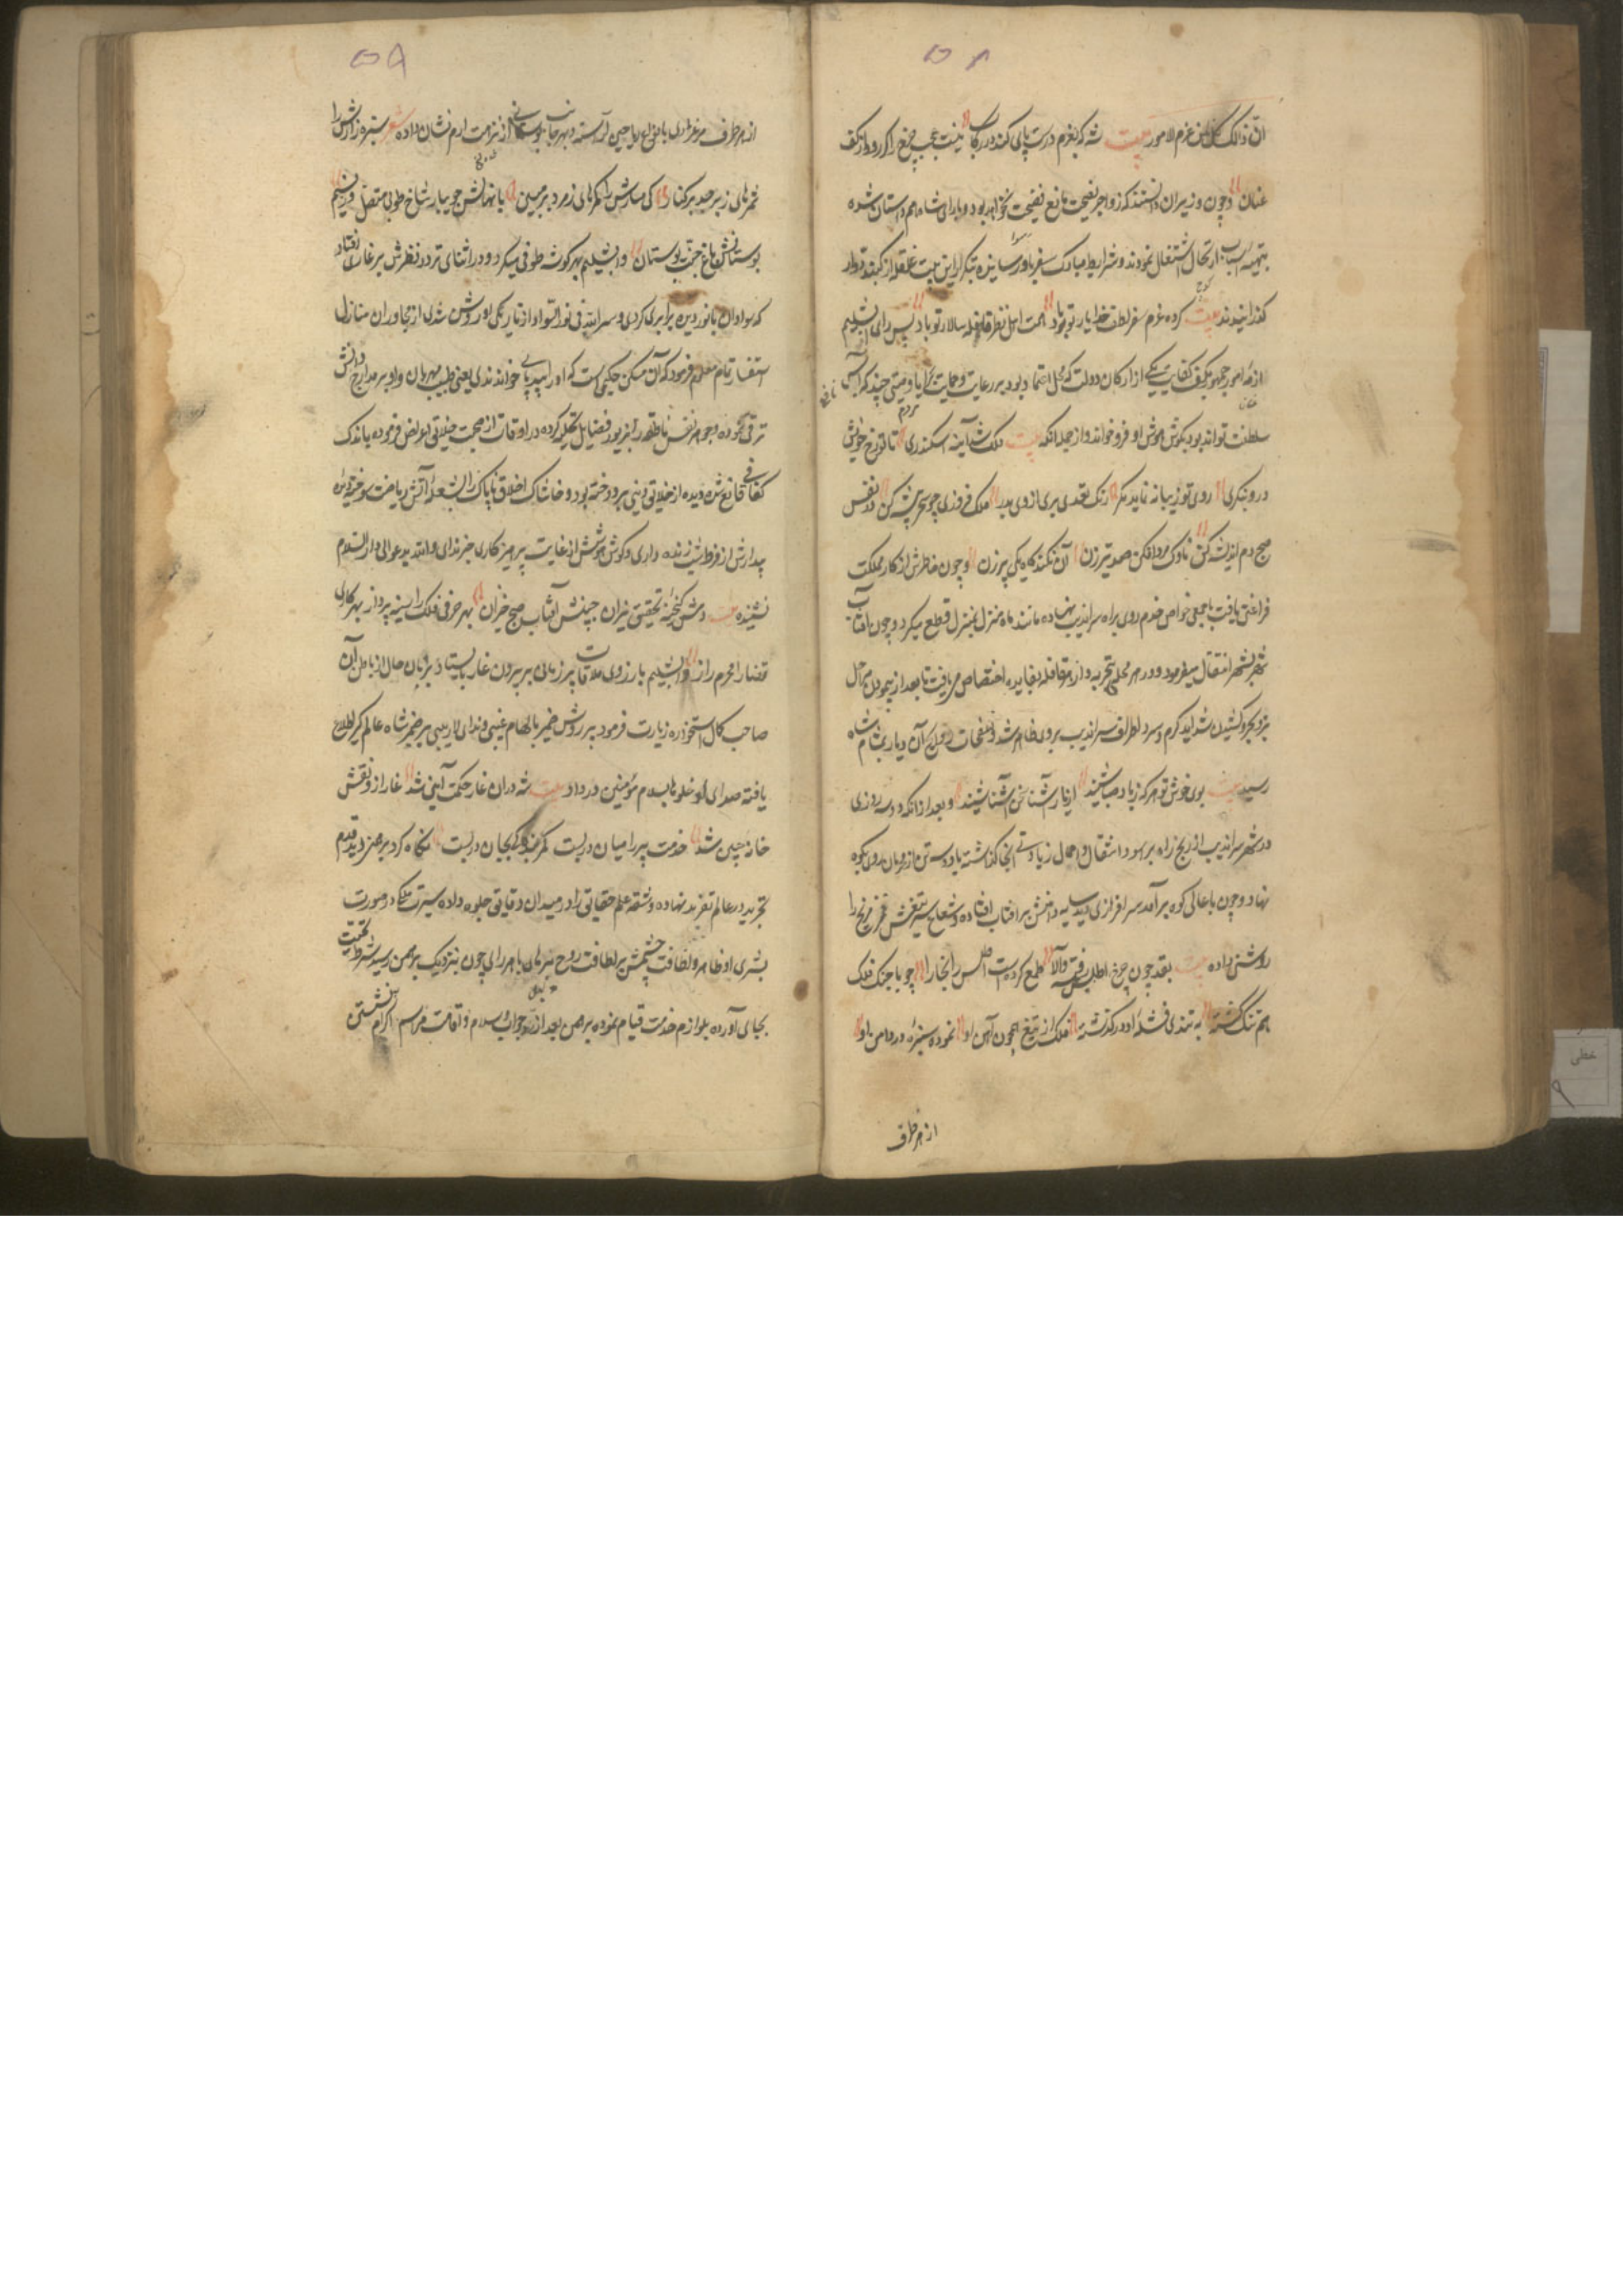 ۵۸
ان ذالک لمن عزم الامور بیت شه که بعزم درست پای کند در رکاب نیست عجب چرخ را کز رود از کف
عنان و چون وزیران دانستند که زواجر نصیحت مانع فضیحت نخواهد بود و با رای شاه هم داستان شده
بتهیه اسباب ارتحال اشتغال نمودند و شرایط مبارک سفر باد رسانیده تکرار این بیت غلغله از گنبد دوار
گذرانیدند بیت کرده عزم سفر لطف خدا یار تو باد همت اهل نظر قافله سالار تو باد پس رای دابشلیم
ازمه امور جمهور بکف کفایت یکی از ارکان دولت که محل اعتماد بود در رعایت و حمایت رعایا وصیتی چند که اساس
سلطنت تواند بود بگوش هوش او فرو خواند و از جمله آنکه بیت ملک شد آینه اسکندری تا تو رخ خویش
در و ننگری روی تو زیبا نه نماید مگر زنگ تعدی بری از وی بدر ملک فروزی چو سحر پیشه کن وز نفس
صبح دم اندیشه کن ناوک مردافکن صد تیرزن آن نکند کاه یکی پیرزن و چون خاطرش از کار مملکت
فراغتی یافت با جمعی خواص خدم روی براه سراندیب نهاده مانند ماه منزل بمنزل قطع میکرد و چون آفتاب
شهر بشهر انتقال میفرمود و در هر محلی تجربه و از هر قافله بفایده اختصاص می یافت تا بعد از پیمودن مراحل
بر و بحر و کشیدن شداید گرم و سرد اطراف سراندیب بروی ظاهر شد و نفحات روایح آن دیار بمشام شاه
رسید بیت بوی خوش تو هر که ز باد صبا شنید از یار آشنا سخن آشنا شنید و بعد از آنکه دو سه روزی
در شهر سراندیب از رنج راه بر آسود اثقال و احمال زیادتی آنجا گذاشته با دو سه تن از محرمان روی بکوه
نهاد و چون باعالی کوه برآمد سرافرازی دید سایه دامنش بر آفتاب افتاده و شعاع سر تیغش مغز مریخ را
روشنی داده بیت بقد چون چرخ اطلس رفته والا طمع کرده ست اطلس را بخارا چو با جنگ فلک
هم تنگ گشته به تندی قله او درگذشته فلک از تیغ همچون آهن او نموده سبزه در دامن او
از هر طرف
۵۹
از هر طرف مرغزاری بانواع ریاحین آراسته و بهر جانب بوستانی از نزهت ارم نشان داده شعر سبزه زارش را
ثمرهای زبرجد بر کنار کوهسارش را کمرهای زمرد بر میان با نهالش جویبار شاخ طوبی متصل و ز نسیم
بوستانش باغ جنت بوستان دابشلیم بهر گوشه طوفی میکرد و در اثنای تردد نظرش بر غاری افتاد
که سواد آن با نور دیده برابری کردی و سر الله فی نور السواد از تاریکی او روشن شدی از مجاوران منازل
استفسار تمام معلوم فرمود که آن مسکن حکیمی است که او را بیدپای خوانندی یعنی طبیب مهربان و او بر مدارج دانش
ترقی نموده و جوهر نفس ناطقه را بزیور فضایل تحلیه کرده در اوقات از صحبت خلایق اعراض فرموده باندک
کفافی قانع شده دیده از خلایق دنیی بردوخته بود و خاشاک اخلاق ناپاک را بشعله آتش ریاضت سوخته دیده
بیدارش از فرط شب زنده داری و گوش هوشش از غایت پرهیزکاری جز ندای والله یدعوا الی دار السلام
نشنیده بیت دلش گنجینه تحقیق یزدان جبینش آفتاب صبح خیزان بهر حرفی فلک را سینه پرداز بهر کاری
قضا را محرم راز دابشلیم بآرزوی ملاقات پیر زمانی بر بیرون غار بایستاد و بزبان حال از باطن آن
صاحب کمال استجازه زیارت فرمود پیر روشن ضمیر بالهام غیبی و ندای لاریبی بر ضمیر شاه عالم گیر اطلاع
یافته صدای ادخلوها بسلام مؤمنین در داد بیت شه در آن غار حکمت آیین شد غار از و نقش
خانه چین شد خدمت پیر را میان در بست کمر بندگی بجان در بست نگاه کرد برهمنی دید قدم
تجرید در عالم تفرید نهاده و شقه علم حقایق را در میدان دقایق جلوه داده سیرت ملکی در صورت
بشری او ظاهر و لطافت جسمش بر لطافت روح نیز باهر رای چون بنزدیک برهمن رسید شرط تحیت
بجای آورده بلوازم خدمت قیام نموده برهمن بعد از رد جواب سلام و اقامت مراسم اکرام بنشستن